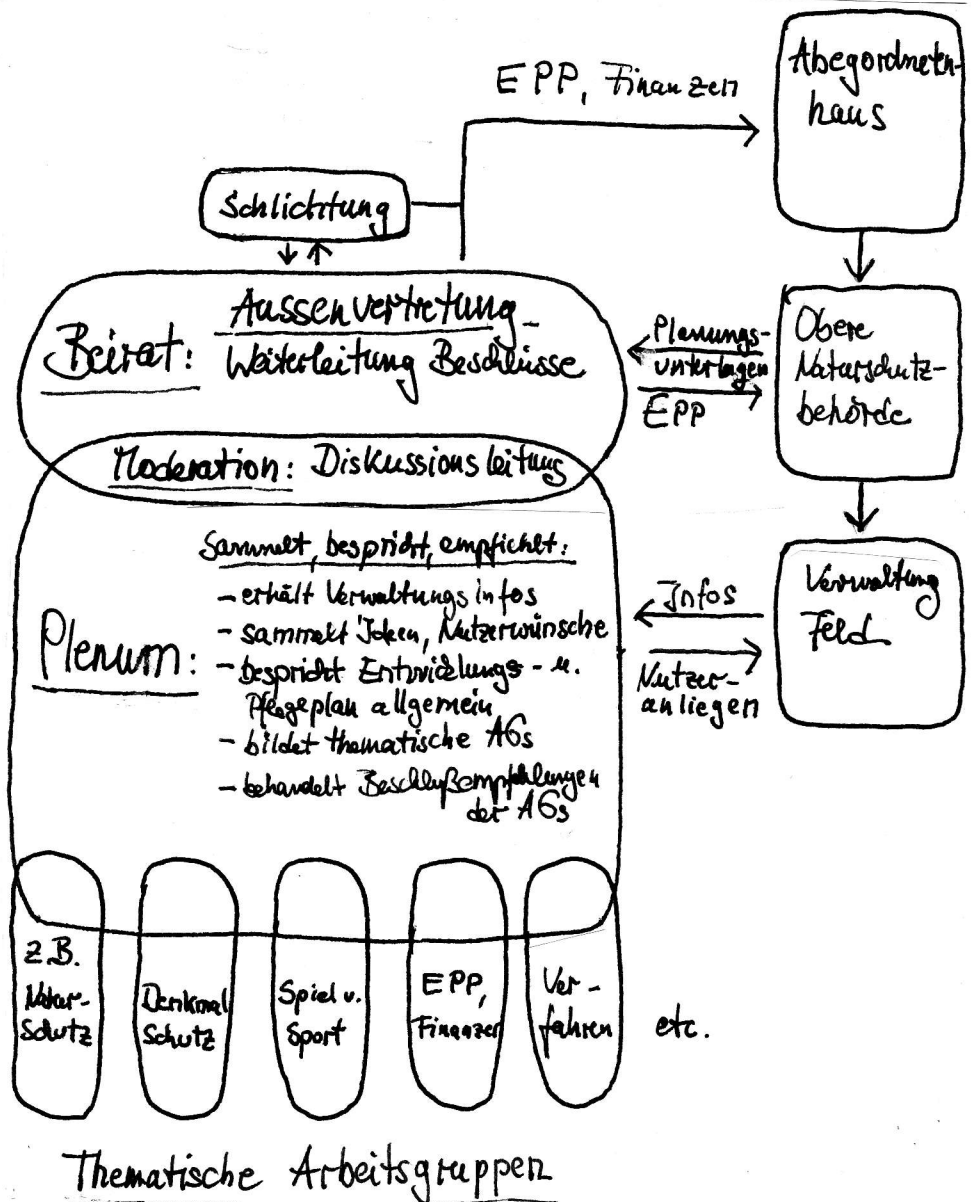 EPP, Finanzen
Abegordneten-
haus
Schlichtung
Aussenvertretung
Beirat: Weiterleitung Beschlüsse
Planungs-
unterlagen
EPP
Obere
Naturschutz-
behörde
Moderation: Diskussionsleitung
Sammelt, bespricht, empfiehlt:
- erhält Verwaltungsinfos
- sammelt Ideen, Nutzerwünsche
Plenum:
- bespricht Entwicklungs- u.
Pflegeplan allgemein
- bildet thematische AGs
- behandelt Beschlußempfehlungen
der AGs
Infos
Nutzer-
anliegen
Verwaltung
Feld
z.B.
Natur-
Schutz
Denkmal
Schutz
Spiel u.
Sport
EPP,
Finanzen
Ver-
fahren
etc.
Thematische Arbeitsgruppen